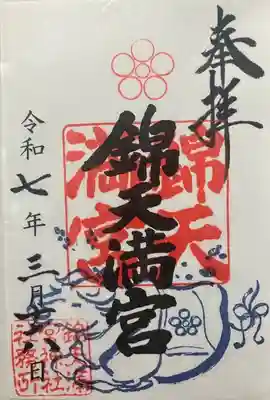 奉拝
錦天満宮
錦天
満宮
令和七年三月十六日